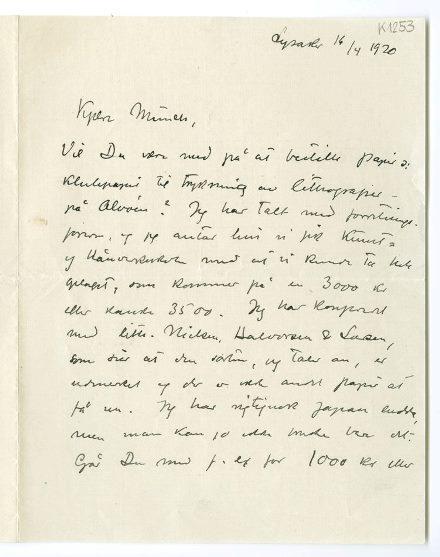 K1253
Lysaker 16/4 1920
Kjære Munch,
Vil Du være med på at bestille papir :
klutepapir til trykning av lithografier –
på Alvøen? Jeg har talt med forretnings-
føreren, og jeg antar hvis vi fik Kunst=
og Håndverksskolen med at vi kunde ta hele
oplaget, som kommer på en 3000 kr
eller kanske 3500. Jeg har konferert
med lith. Nielsen, Halvorsen & Larsen,
som sier at den sorten, jeg taler om, er
utmerket og der er ikke andet papir at
få nu. Jeg har rigtignok Japan endda,
men man kan jo ikke bruke bare det.
Går Du med f. ex for 1000 kr eller